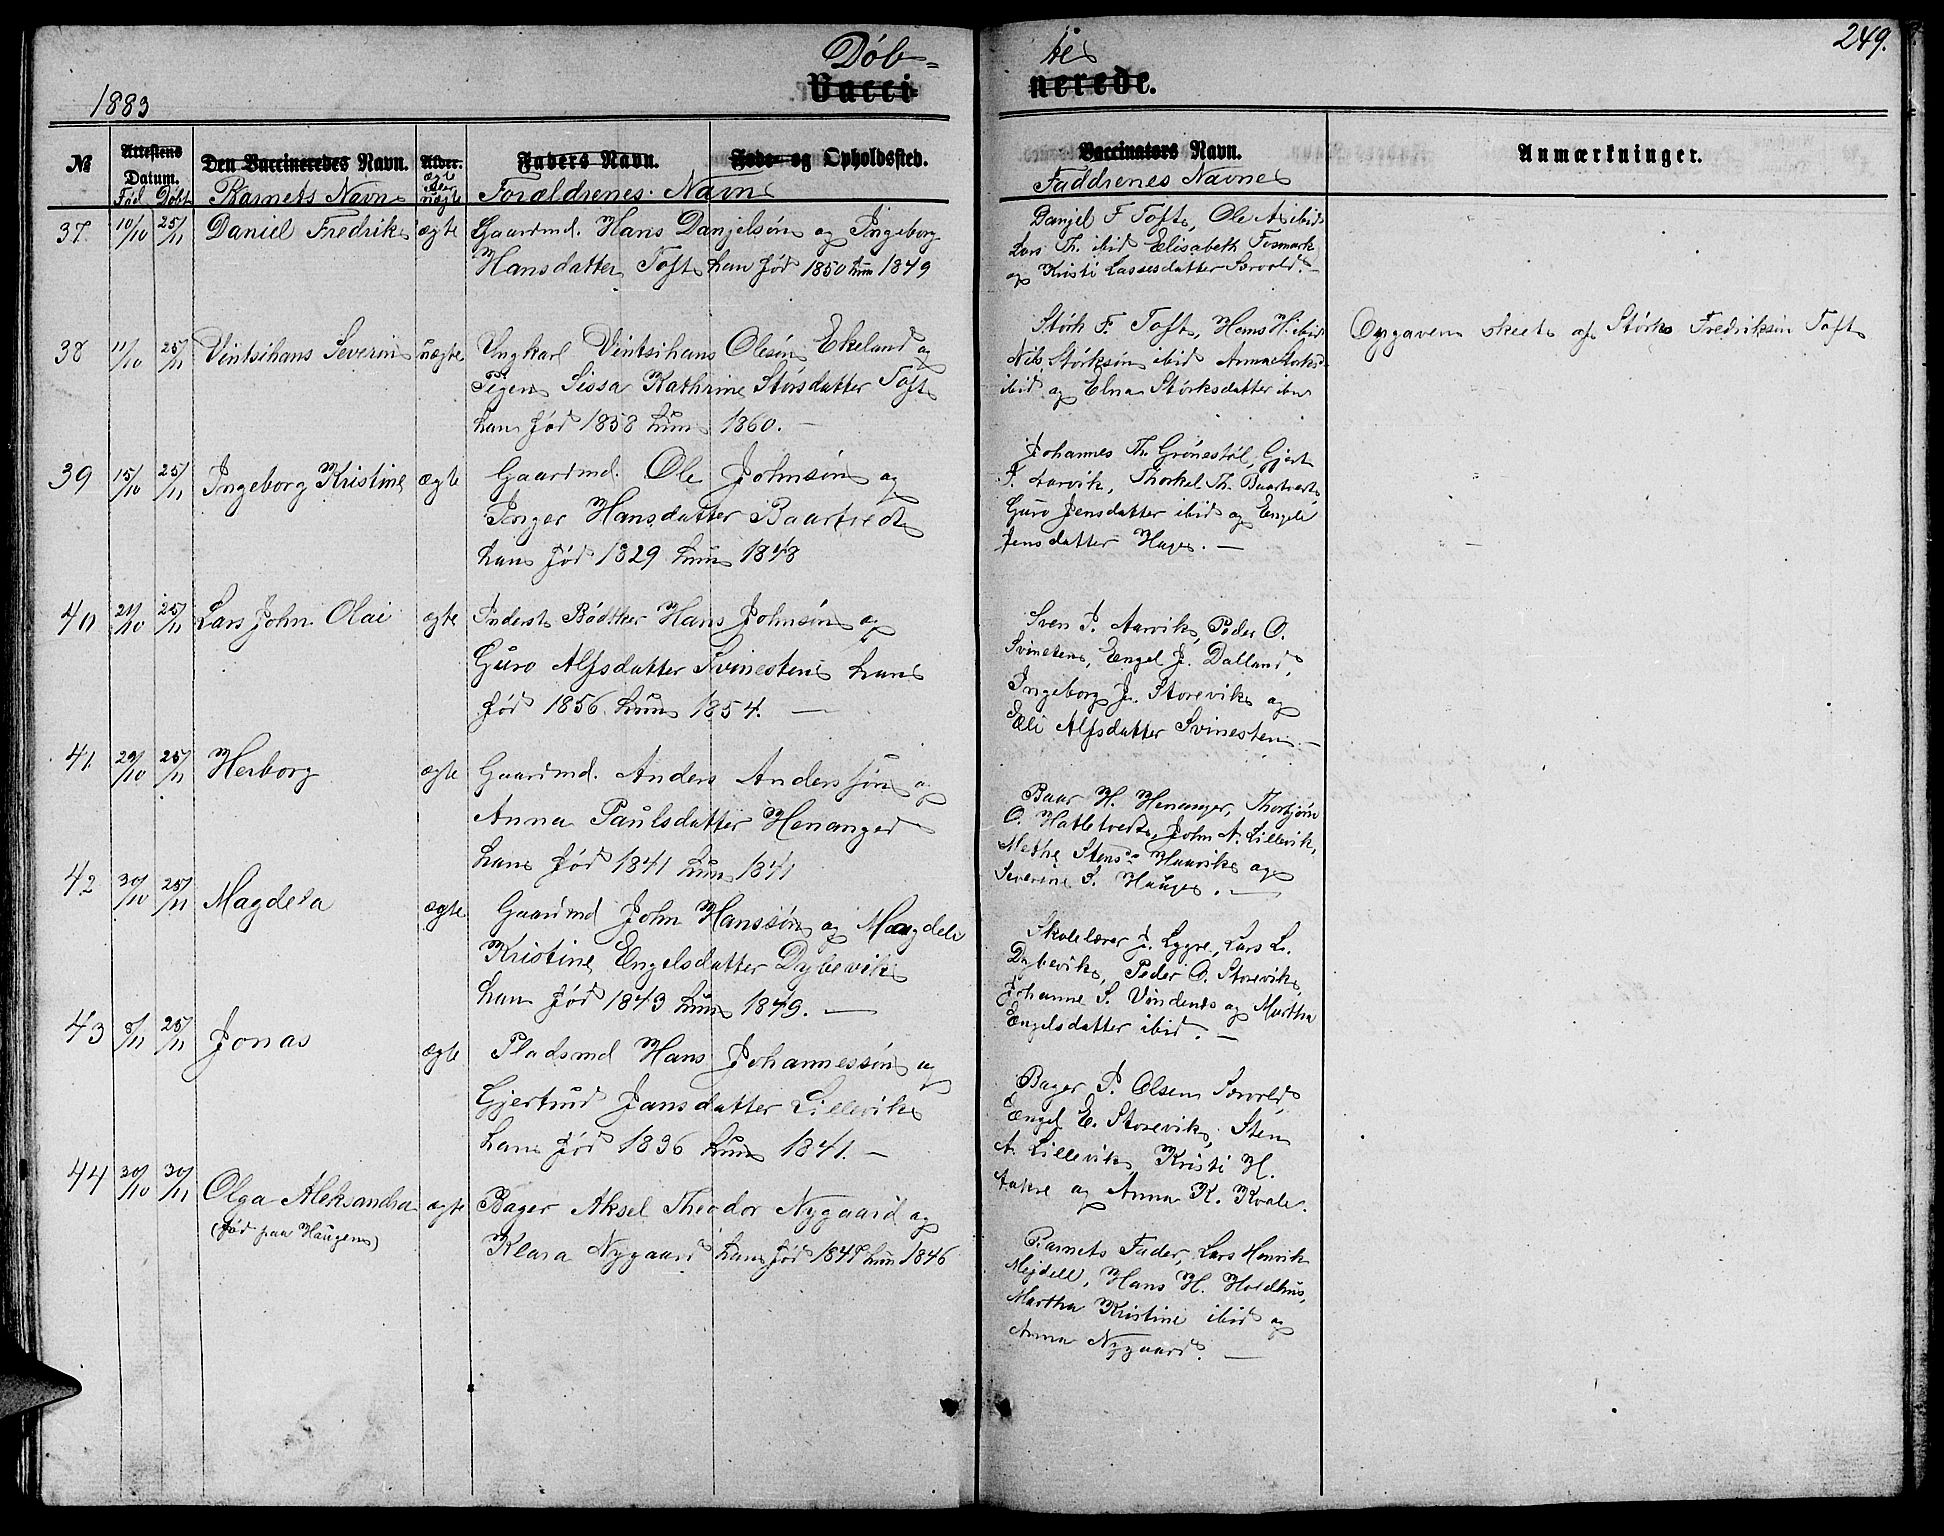 Døb=
te
249.
Vacci-
nerede.
1883
№
Attestens
Datum.
Fød Døbt
Den Vaccineredes Navn.
Barnets Navn
Alder.
ægte
eller
uægte
Faders Navn.
Forældrenes Navn
Føde- og Opholdssted.
Vaccinators Navn.
Faddrenes Navne
Anmærkninger.
37. 10/10 25/11 Daniel Fredrik ægte Gaardmd. Hans Danjelsøn og Ingeborg
Hansdatter Toft han fød 1850 hun 1849
Danjel F. Toft, Ole A. ibid
Lars Th. ibid Elisabeth Fosmark
og Kristi Lassesdatter Sørvold. —
38 11/10 25/11 Vintsihans Severin uægte Ungkarl Vintsihans Olesøn Ekeland og
Pigen Sissa Kathrine Størsdatter Toft
han fød 1858 hun 1860. —
Størk F. Toft, Hans H. ibid
Nils Størksøn ibid Anna Størksd.
ibid og Elna Størksdatter
Opgaven skeet af Størk Fredriksøn Toft
39 15/10 25/11 Ingeborg Kristine ægte Gaardmd. Ole Johnsøn og
Inger Hansdatter Baartvedt
han fød 1829 hun 1848
Johannes Th. Grønestøl, Gjert
F. Aarvik, Thorkel Th. Baartvedt,
Guro Jensdatter ibid og Engele
Jensdatter Hage. —
40 21/10 25/11 Lars John Olai ægte Inderst Bødtker Hans Johnsøn og
Guro Alfsdatter Svinesten han
fød 1856 hun 1854. —
Sven J. Aarvik, Peder O.
Svinesten, Engel J. Dalland,
Ingeborg J. Storevik og
Eli Alfsdatter Svinesten. —
41. 29/10 25/11 Herborg ægte Gaardmd. Anders Anderssøn og
Anna Paulsdatter Henanger
han fød 1841 hun 1841
Baar H. Henanger, Thorbjørn
O. Hatletvedt, John A. Lillevik,
Methe Stensd. Haavik og
Severine S. Hauge. —
42 30/10 25/11 Magdela ægte Gaardmd John Hanssøn og Magdele
Kristine Engelsdatter Dybevik
han fød 1843 hun 1849. —
Skolelærer J. Lygre, Lars L.
Dybevik, Peder O. Storevik,
Johanne S. Vindenes og Martha
Engelsdatter ibid. —
43 8/11 25/11 Jonas ægte Pladsmd Hans Johannessøn og
Gjertrud Jansdatter Lillevik
han fød 1836 hun 1841. —
Bager P. Olsen Sørvold,
Engel E. Storevik, Sten
A. Lillevik, Kristi H.
Aakre og Anna K. Kvale.
44 30/10 30/11 Olga Aleksandra ægte Bager Aksel Theodor Nygaard og
(fød paa Haugen)
Klara Nygaard han fød 1848 hun 1846
Barnets Fader, Lars Henrik
Mejdell, Hans H. Holdhus,
Martha Kristine ibid og
Anna Nygaard. —